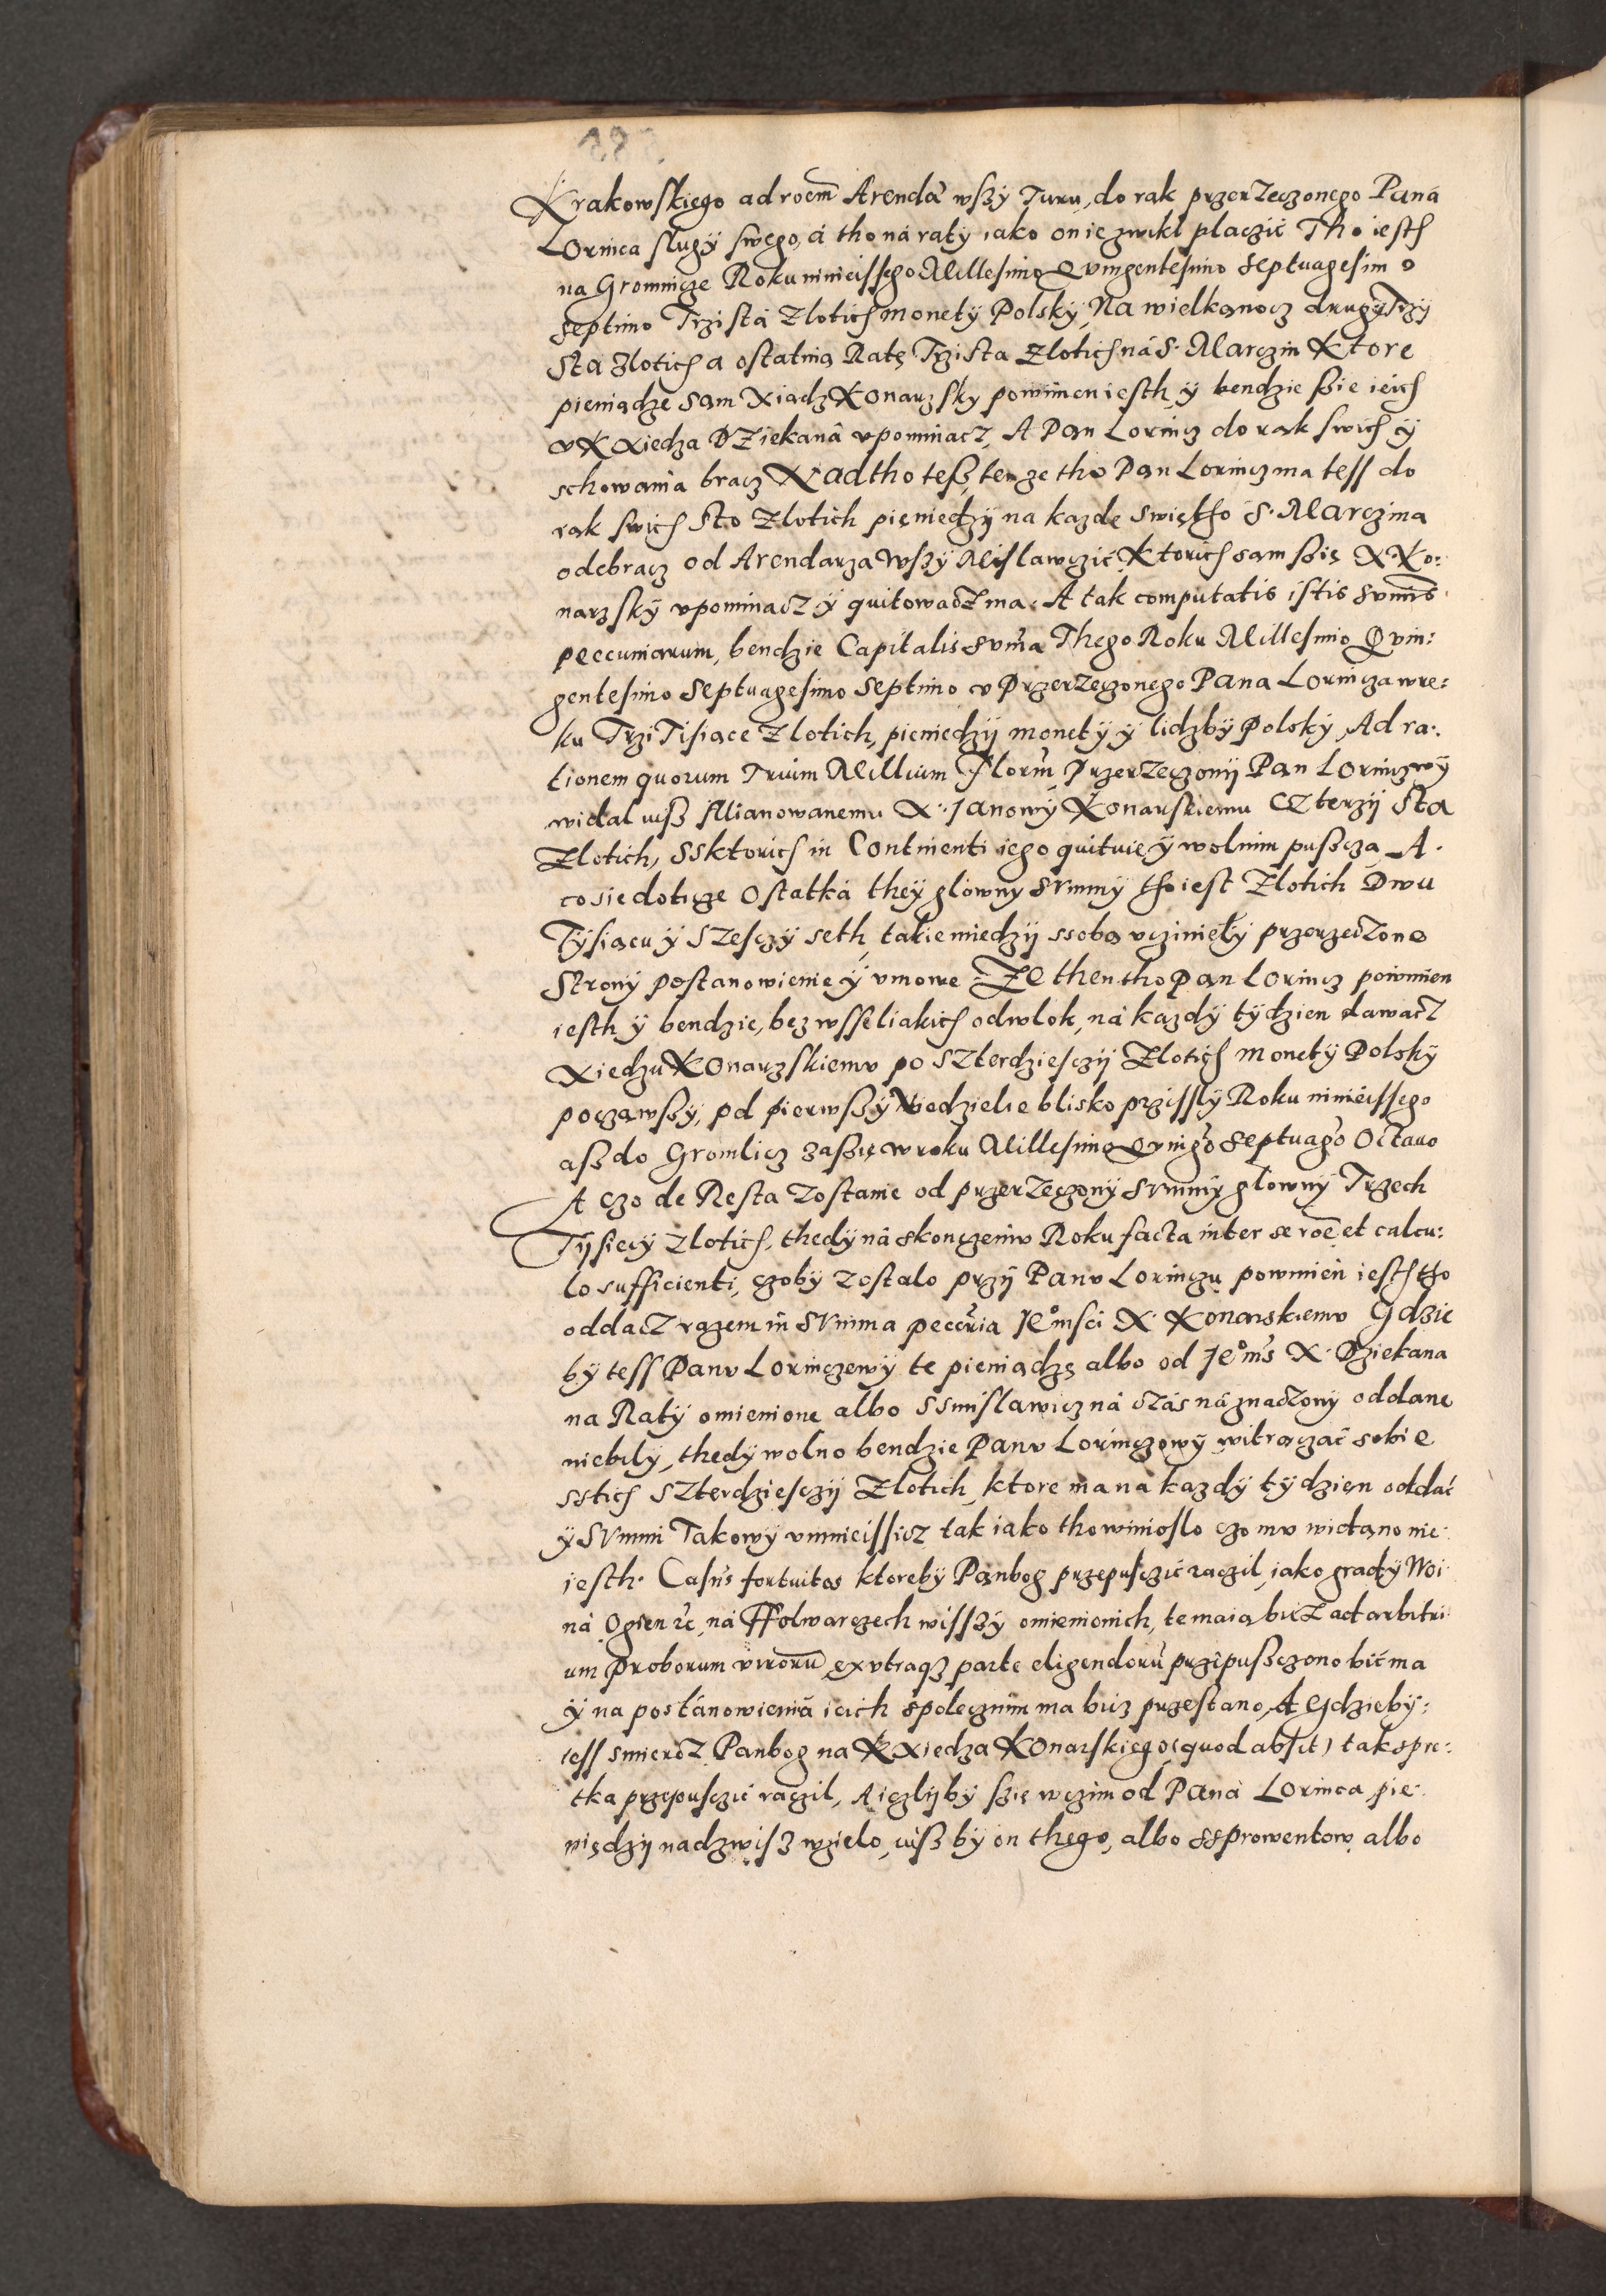 Krakowskiego ad roem Arendá wszÿ Turu, do rak przerzeczonego Paná
Lorinca slugÿ swego, á tho ná ratÿ iako on ie zwikl placzić Tho iesth
na Gromnicze Roku ninieissego Millesimo Quingentesimo Septuagesimo
Septimo Trzista Zlotich monetÿ Polskÿ, Na wielkanocz drugÿ Trzÿ
sta Zlotich a ostatnią Ratę Trzista Zlotich ná S. Marczin Ktore
pieniądze sam Xiadz Konarzsky powinien iesth ÿ bendzie szie ieich
v X Xiedza Dziekaná vpominacz, A Pan Lorincz do rak swich ÿ
schowania bracz Nad tho tesz, tenze tho Pan Lorincz ma tess do
rak swich Sto Zlotich pieniedzÿ na kazde swiętho S. Marczina
odebracz od Arendarza wszÿ Mislawczić Ktorich sam szię X Ko:
narzskÿ vpominacz ÿ quitowacz ma. A tak computatis istis summis
peccuniarum, bendzie Capitalis suma Thego Roku Millesimo Quin:
gentesimo Septuagesimo Septimo v Przerzeczonego Pana Lorincza wre:
ku Trzi Tisiace Zlotich, pieniedzij monetÿ ÿ lidzbÿ Polskÿ, Ad ra:
tionem quorum Trium Millium Florum Przerzeczonij Pan Lorincz wÿ
widal iusz Mianowanemu X. Janowÿ Konarskiemu Czterzij Sta
Zlotich, Ssktorich in Continenti iego quituie ÿ wolnim puszcza A.
co sie doticze Ostatká theÿ glownÿ Summÿ tho iest Zlotich Dwu
Tÿsiącu ÿ Szesczÿ seth, takie miedzij ssobą vcziniełÿ przerzeczone
Stronÿ postanowienie ÿ vmowe Że then tho Pan Lorincz powinien
iesth ÿ bendzie, bez wsseliakich odwlok, ná kazdÿ tÿdzien dawacz
Xiedzu Konarzskiemv po Szterdziesczij Zlotich monetÿ Polskÿ
począwszÿ, od pierwszÿ Niedzielie blisko przisslÿ Roku ninieissego
asz do Gromlicz zaszię w roku Millesimo Quingo Septuago Octauo
A czo de Resta zostanie od przerzeczonÿ Summÿ glownÿ Trzech
Tijsiecÿ Zlotich, thedÿ ná skonczeniv Roku facta inter se roe et calcu:
lo sufficienti, czobÿ zostalo przÿ Panv Lorinczu powinien iesth tho
oddacz razem in Summa peccuria Jeo msci X Konarskiemv Gdzie
bÿ tess Panv Lorinczewÿ te pieniądzę albo od Jeo ms X. Dziekana
na Ratÿ omienione albo Ssmislawicz ná czás náznaczonÿ oddane
niebÿlÿ, thedÿ wolno bendzie Panv Lorinczowÿ witraczać sobie
sstich Szterdziesczij Zlotich, ktore ma na kazdÿ tÿdzien oddać
ÿ Summi Takowÿ vmnieissicz tak iako tho winioslo czo mv widano nie
iesth. Casus fortuitos ktorebÿ Panbog przepusczić raczil, iako gradÿ Woi
ná Ogien etc, ná Ffolwarczech wisszÿ omienionich, te maia bicz ad arbitri
um Proborum virorum, ex utraqz parte eligendorum przipuszczono bić ma
ÿ na postánowieniá ieich spolecznim ma bicz przestano, A Gdziebÿ:
tess smiercz Panbog na X Xiedza Konarskiego (quod absit) tak spre:
tka przepusczić raczil, A iezlijbÿ szię wczim od Paná Lorinca pie
niędzij nadzwisz wzielo, iusz bÿ on thego, albo ssprowentow albo